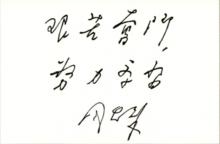 艰苦奋斗，
努力学习
周恩来